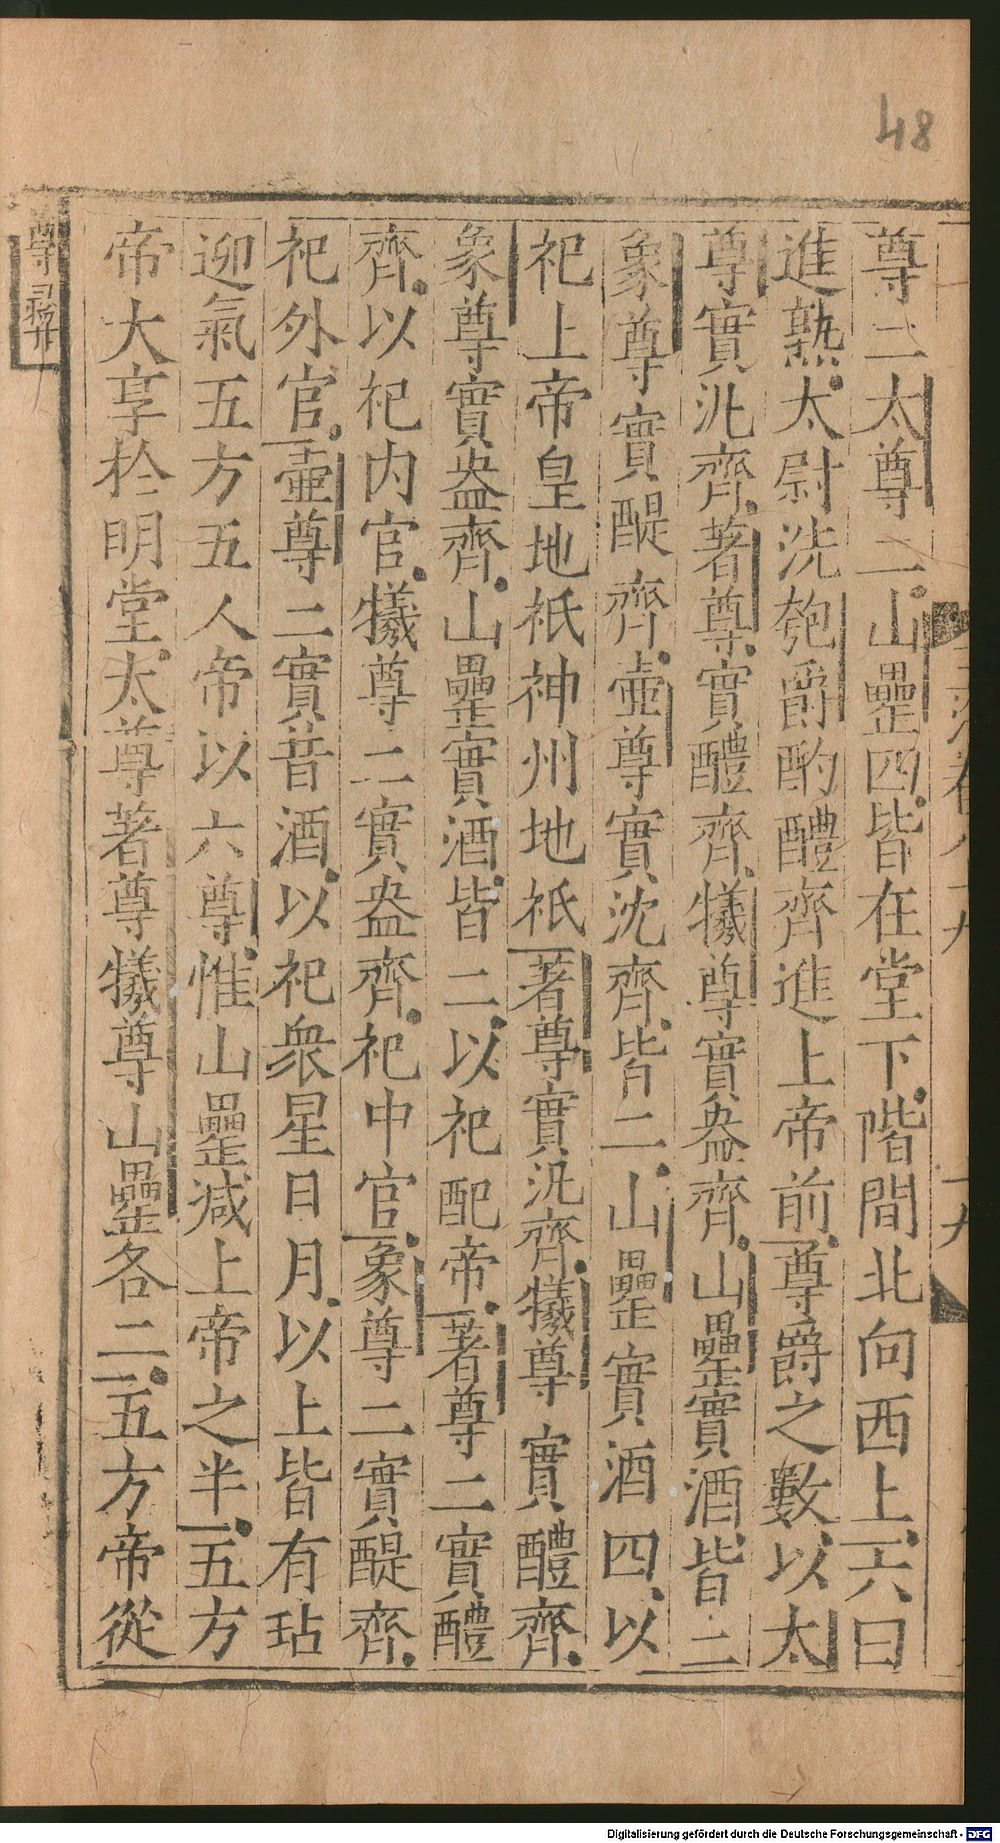 48
尊二太尊二山罍四皆在堂下階間北向西上六曰
進熟太尉洗匏爵酌醴齊進上帝前尊爵之數以太
尊實汎齊著尊實醴齊犧尊實盎齊山罍實酒皆二
象尊實醍齊壺尊實沈齊皆二山罍實酒四以
祀上帝皇地祇神州地祇著尊實汎齊犧尊實醴齊
象尊實盎齊山罍實酒皆二以祀配帝著尊二實醴
齊以祀内官犧尊二實盎齊祀中官象尊二實醍齊
祀外官壺尊二實昔酒以祀衆星日月以上皆有坫
迎氣五方五人帝以六尊惟山罍減上帝之半五方
帝大享於明堂太尊著尊犧尊山罍各二五方帝從
尊罍
Digitalisierung gefördert durch die Deutsche Forschungsgemeinschaft - DFG